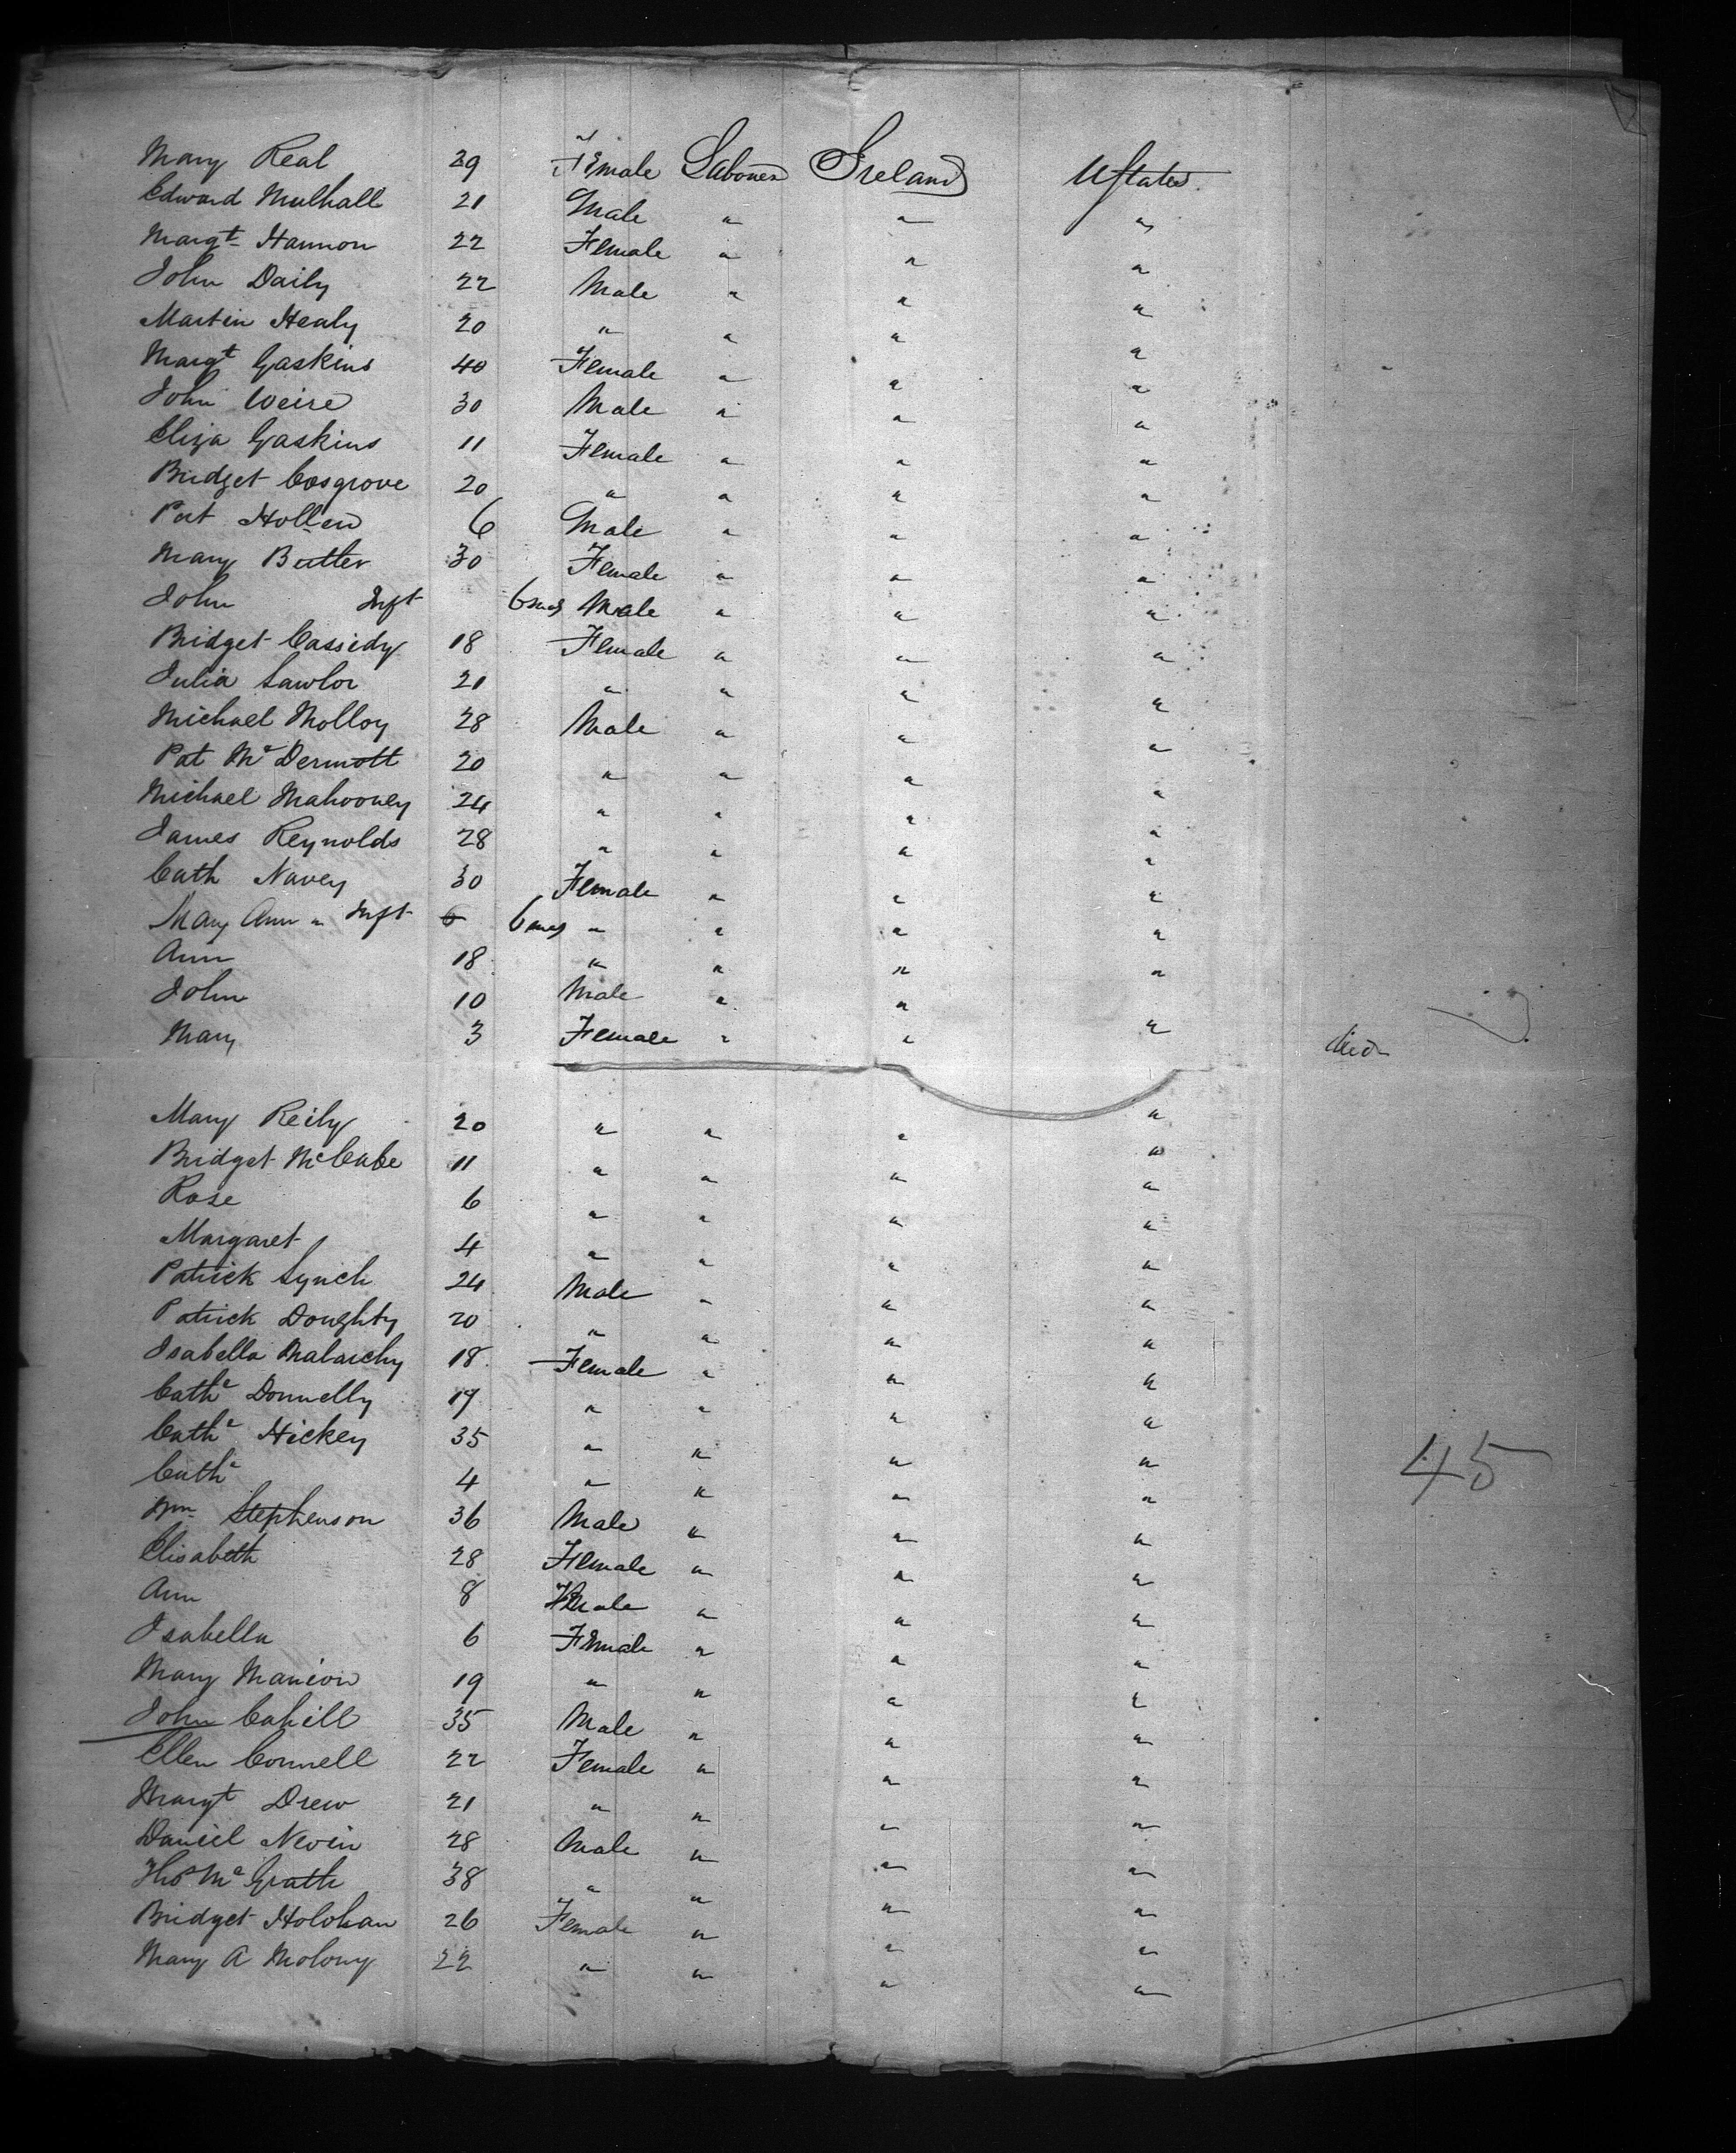 Mary Real 29 Female Labourer Ireland UStates
Edward Mulhall 21 Male " " "
Margt Hannon 22 Female " " "
John Daily 22 Male " " "
Martin Healy 20 " " " "
Margt Gaskins 40 Female " " "
John Weire 30 Male " " "
Eliza Gaskins 11 Female " " "
Bridget Cosgrove 20 " " " "
Pat Hollen 6 Male " " "
Mary Butler 30 Female " " "
John Inft 6 mos Male " " "
Bridget Cassidy 18 Female " " "
Julia Lawlor 21 " " " "
Michael Molloy 28 Male " " "
Pat McDermott 20 " " " "
Michael Mahooney 24 " " " "
James Reynolds 28 " " " "
Cath Navey 30 Female " " "
Mary Ann " Inft 6 6 mos " " " "
Ann 18 " " " "
John 10 Male " "
Mary 3 Female " " " died
Mary Reily 20 " " " "
Bridget McCabe 11 " " " "
Rose 6 " " " "
Margaret 4 " " " "
Patrick Lynch 24 Male " " "
Patrick Doughty 20 " " " "
Isabella Malarchy 18 Female " " "
Cathe Donnelly 19 " " " "
Cathe Hickey 35 " " " "
Cathe 4 " " " "
45
Wm Stephenson 36 Male " " "
Elisabeth 28 Female " " "
Ann 8 Female " " "
Isabella 6 Female " " "
Mary Manion 19 " " " "
John Cahill 35 Male " " "
Ellen Connell 22 Female " " "
Margt Drew 21 " " " "
Daniel Nevin 28 Male " " "
Thos McGrath 38 " " " "
Bridget Holohan 26 Female " " "
Mary A Molony 22 " " " "